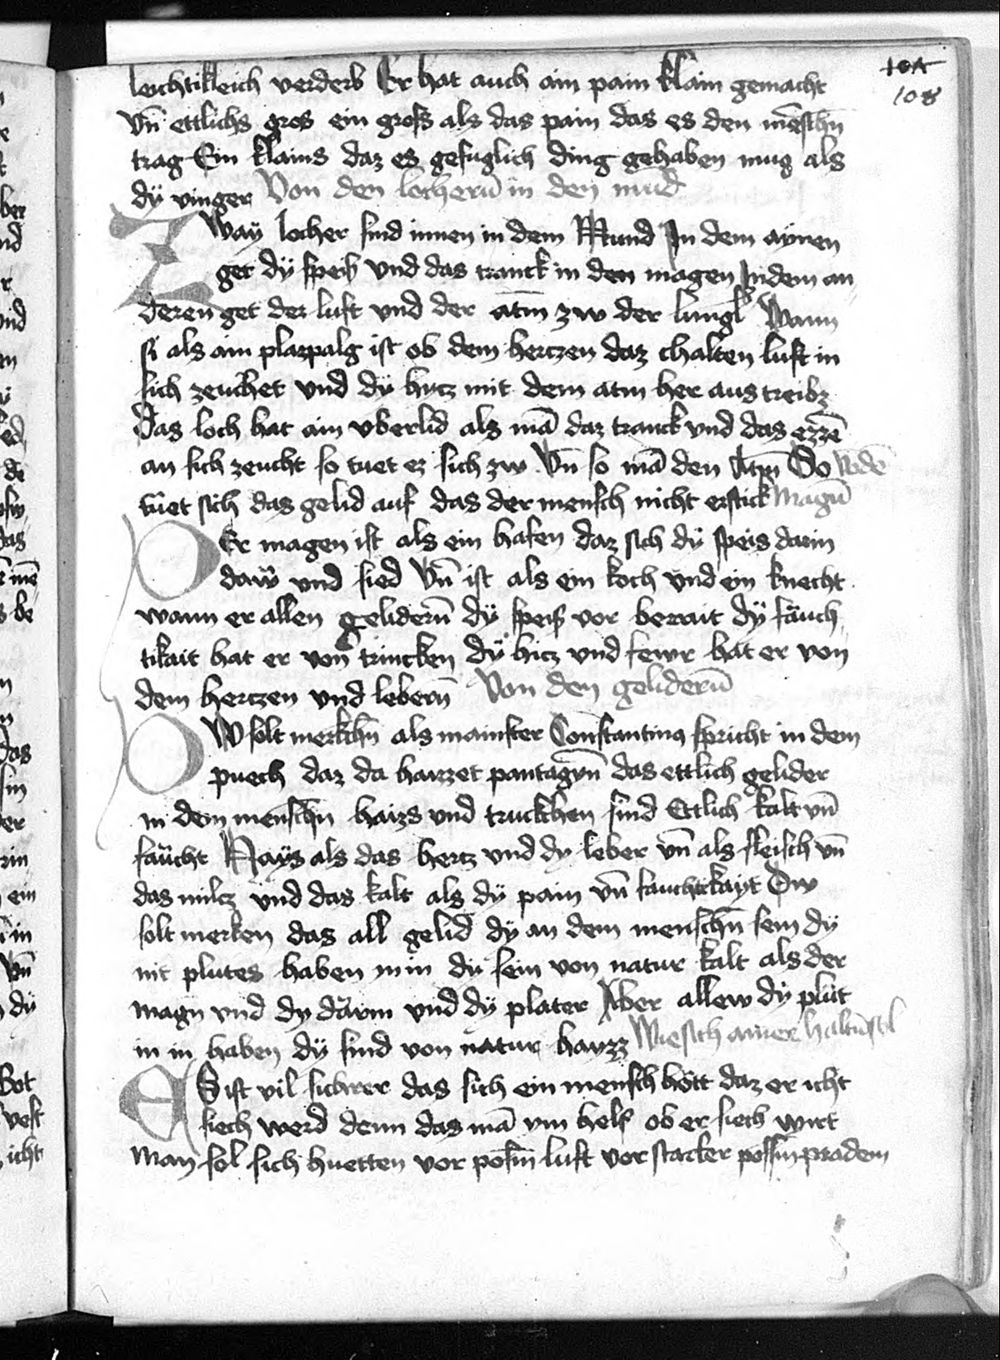 104
108
leichtikleich verderb Er hat auch ain pain klain gemacht
Vn̄ ettlichs gros ein groſs als das pain das es den mēſchn̄
trag Ein klains daz es gefuglich ding gehaben mug als
dÿ vinger Von den locherū in den mūd
ZWaÿ locher ſind innen in dem Mund In dem aynen
get dÿ ſpeiſ vnd das tranck in den magen Indem an
deren get der luft vnd der atm̄ zw der lungl Wann
ſi als ain plazpalg iſt ob dem hertzen daz chalten luft in
ſich zeuchet vnd dÿ hytz mit dem atm her aus treibz
Das loch hat ain vberlid als mā daz tranck vnd das ezzē
an ſich zeucht ſo tuet ez ſich zw Vn̄ ſo mā den Atm̄ So Vō dē
tüet ſich das gelid auf das der menſch nicht erſtick Magū
DEr magen iſt als ein hafen daz ſich dÿ ſpeis darin
daẅ vnd ſied Vn̄ iſt als ein koch vnd ein knecht
wann er allen geliderū dÿ ſpeiſ vor berait dÿ fäuch
tikait hat er von trincken dÿ hicz vnd fewr hat er von
dem hertzen vnd leberū Von den geliderū
DW ſolt merkchn̄ als mainſter Conſtantinꝰ ſpricht in dem
puech daz da haizzet pantagnn̄ das ettlich gelider
in dem menſchn̄ haizs vnd truckhen ſind Ettlich kalt vn̄
fäucht Hayſs als das hertz vnd dy leber vn̄ als fleiſch vn̄
das milcz vnd das kalt als dÿ pain vn̄ fauchtikayt Dw
ſolt merken das all gelid dÿ an dem menſchn̄ ſein dÿ
nit plutes haben in in dü ſein von natur kalt als der
magn̄ vnd dy därm vnd dÿ plater Aber allew dÿ plüt
in in haben dÿ ſind von natur hayzz Wie ſich ainer halt̄n ſol
ES iſt vil ſichrer das ſich ein menſch hött daz er icht
ſiech werd denn das mā ym helf ob er ſiech wirt
Man ſol ſich huetten vor poſm̄ luft vor ſtarker poſſm̄ pradem